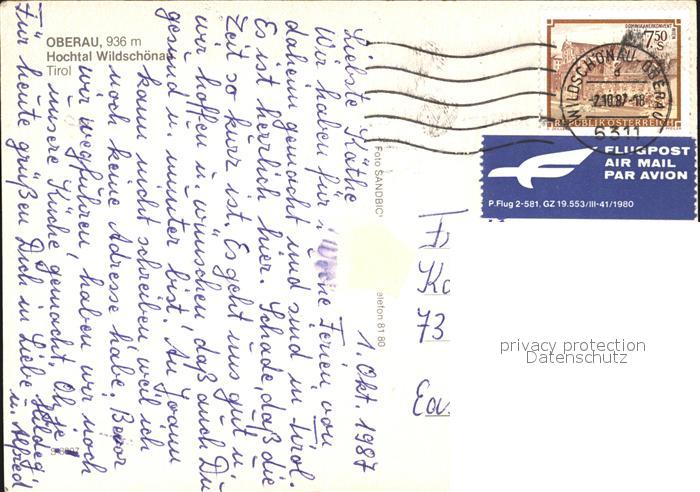 OBERAU, 936 m
Hochtal Wildschönau
Tirol
1. Okt. 1987
Liebste Käthe
Wir haben für 1 Woche Ferien von
daheim gemacht und sind in Tirol.
Es ist herrlich hier. Schade, daß die
Zeit so kurz ist. Es geht uns gut u.
wir hoffen u. wünschen daß auch Du
gesund u. munter bist! An Joann
kann nicht schreiben weil ich
noch keine Adresse habe. Bevor
wir wegfuhren, haben wir noch
unsere Küche gemacht.
Für heute grüßen Dich in Liebe Hildeg.
u. Alfred
Foto SANDBICH
elefon 81 80
DOMINIKANERKONVENT
WIEN
7.50
S
REPUBLIK ÖSTERREICH
WILDSCHÖNAU-OBERAU
a
-7.10.87-18
6311
FLUGPOST
AIR MAIL
PAR AVION
P.Flug 2-581, GZ 19.553/III-41/1980
73
privacy protection
Datenschutz